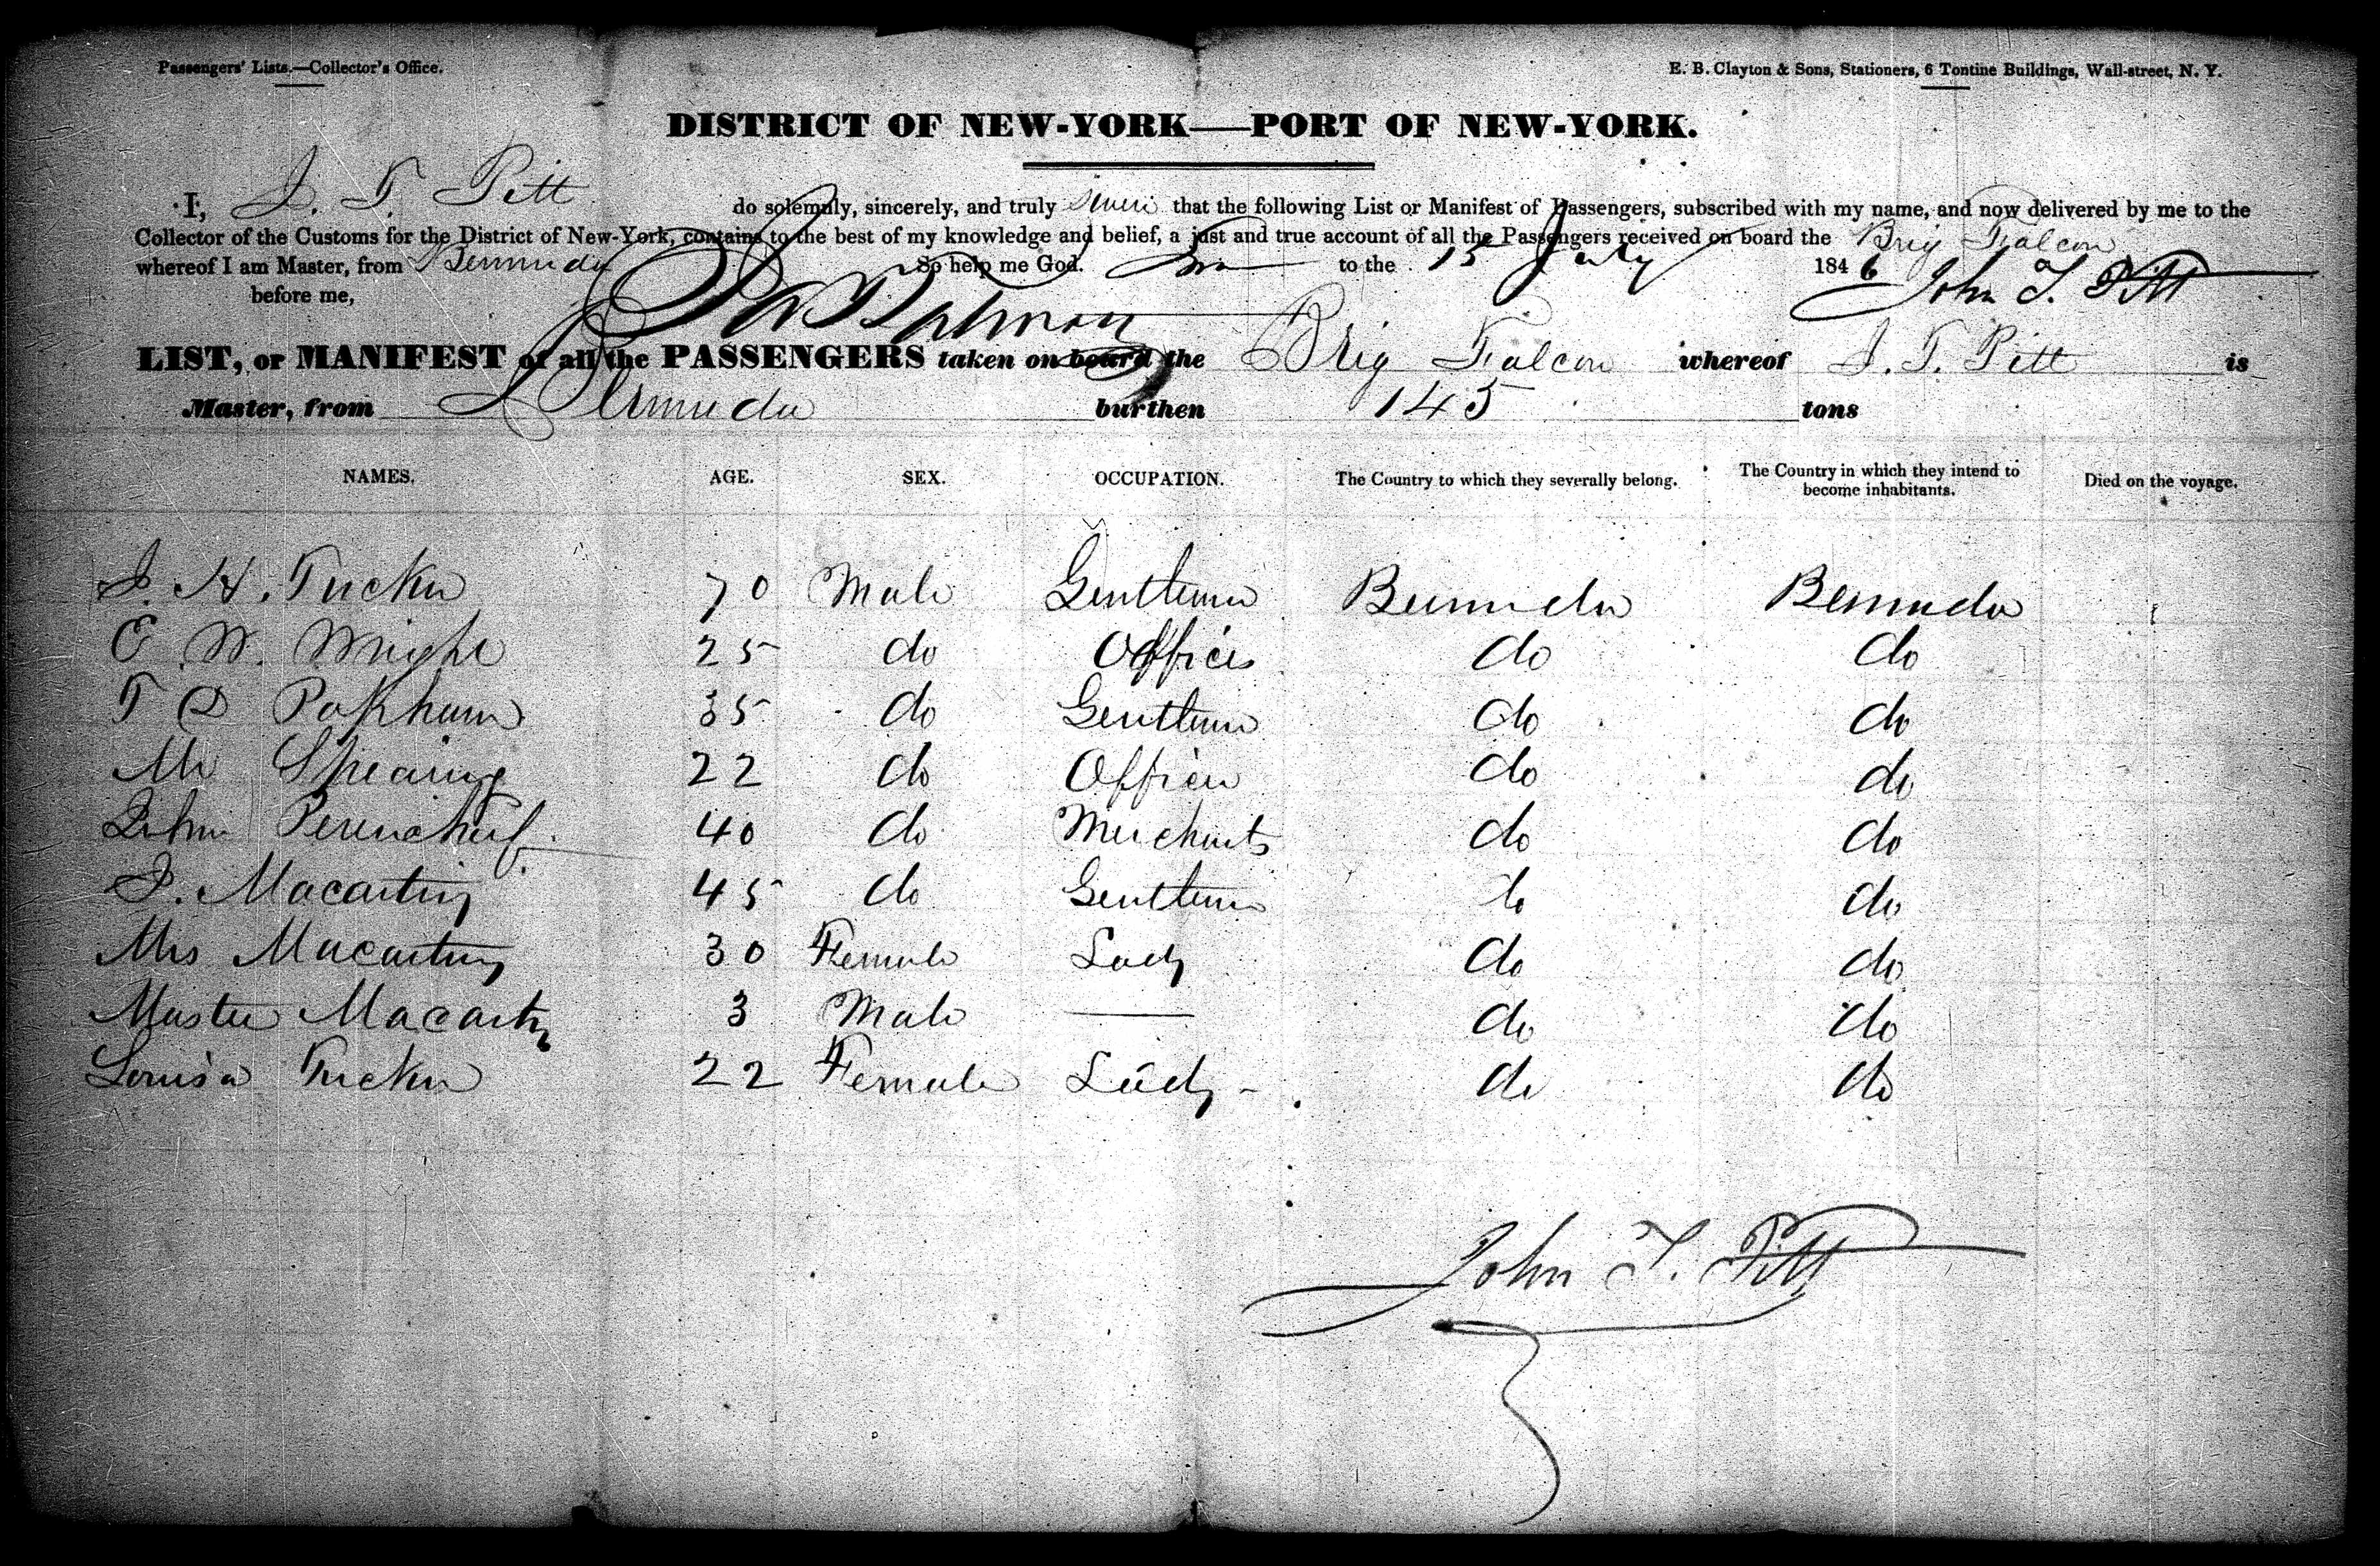 Passengers' Lists.—Collector's Office.
E. B. Clayton & Sons, Stationers, 6 Tontine Buildings, Wall-street, N. Y.
DISTRICT OF NEW-YORK—PORT OF NEW-YORK.
I, J. T. Pitt do solemnly, sincerely, and truly swear that the following List or Manifest of Passengers, subscribed with my name, and now delivered by me to the
Collector of the Customs for the District of New-York, contains to the best of my knowledge and belief, a just and true account of all the Passengers received on board the Brig Falcon
whereof I am Master, from Bermuda So help me God. to the 15 July 1846 John T. Pitt
before me,
LIST, or MANIFEST of all the PASSENGERS taken on board the Brig Falcon whereof J. T. Pitt is
Master, from Bermuda burthen 145 tons
NAMES. AGE. SEX. OCCUPATION. The Country to which they severally belong. The Country in which they intend to become inhabitants. Died on the voyage.
J. H. Tucker 70 Male Gentleman Bermuda Bermuda
E. W. Wright 25 do Officer do do
T D Pakham 35 do Gentleman do do
Mr Shearing 22 do Officer do do
John Perenchief 40 do Merchants do do
J. Macartny 45 do Gentleman do do
Mrs Macartny 30 Female Lady do do
Master Macartny 3 Male — do do
Louisa Tucker 22 Female Lady - do do
John T. Pitt